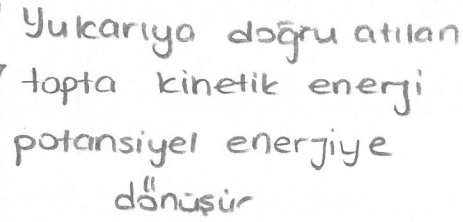 Yukarıya doğru atılan
topta kinetik enerji
potansiyel enerjiye
dönüşür